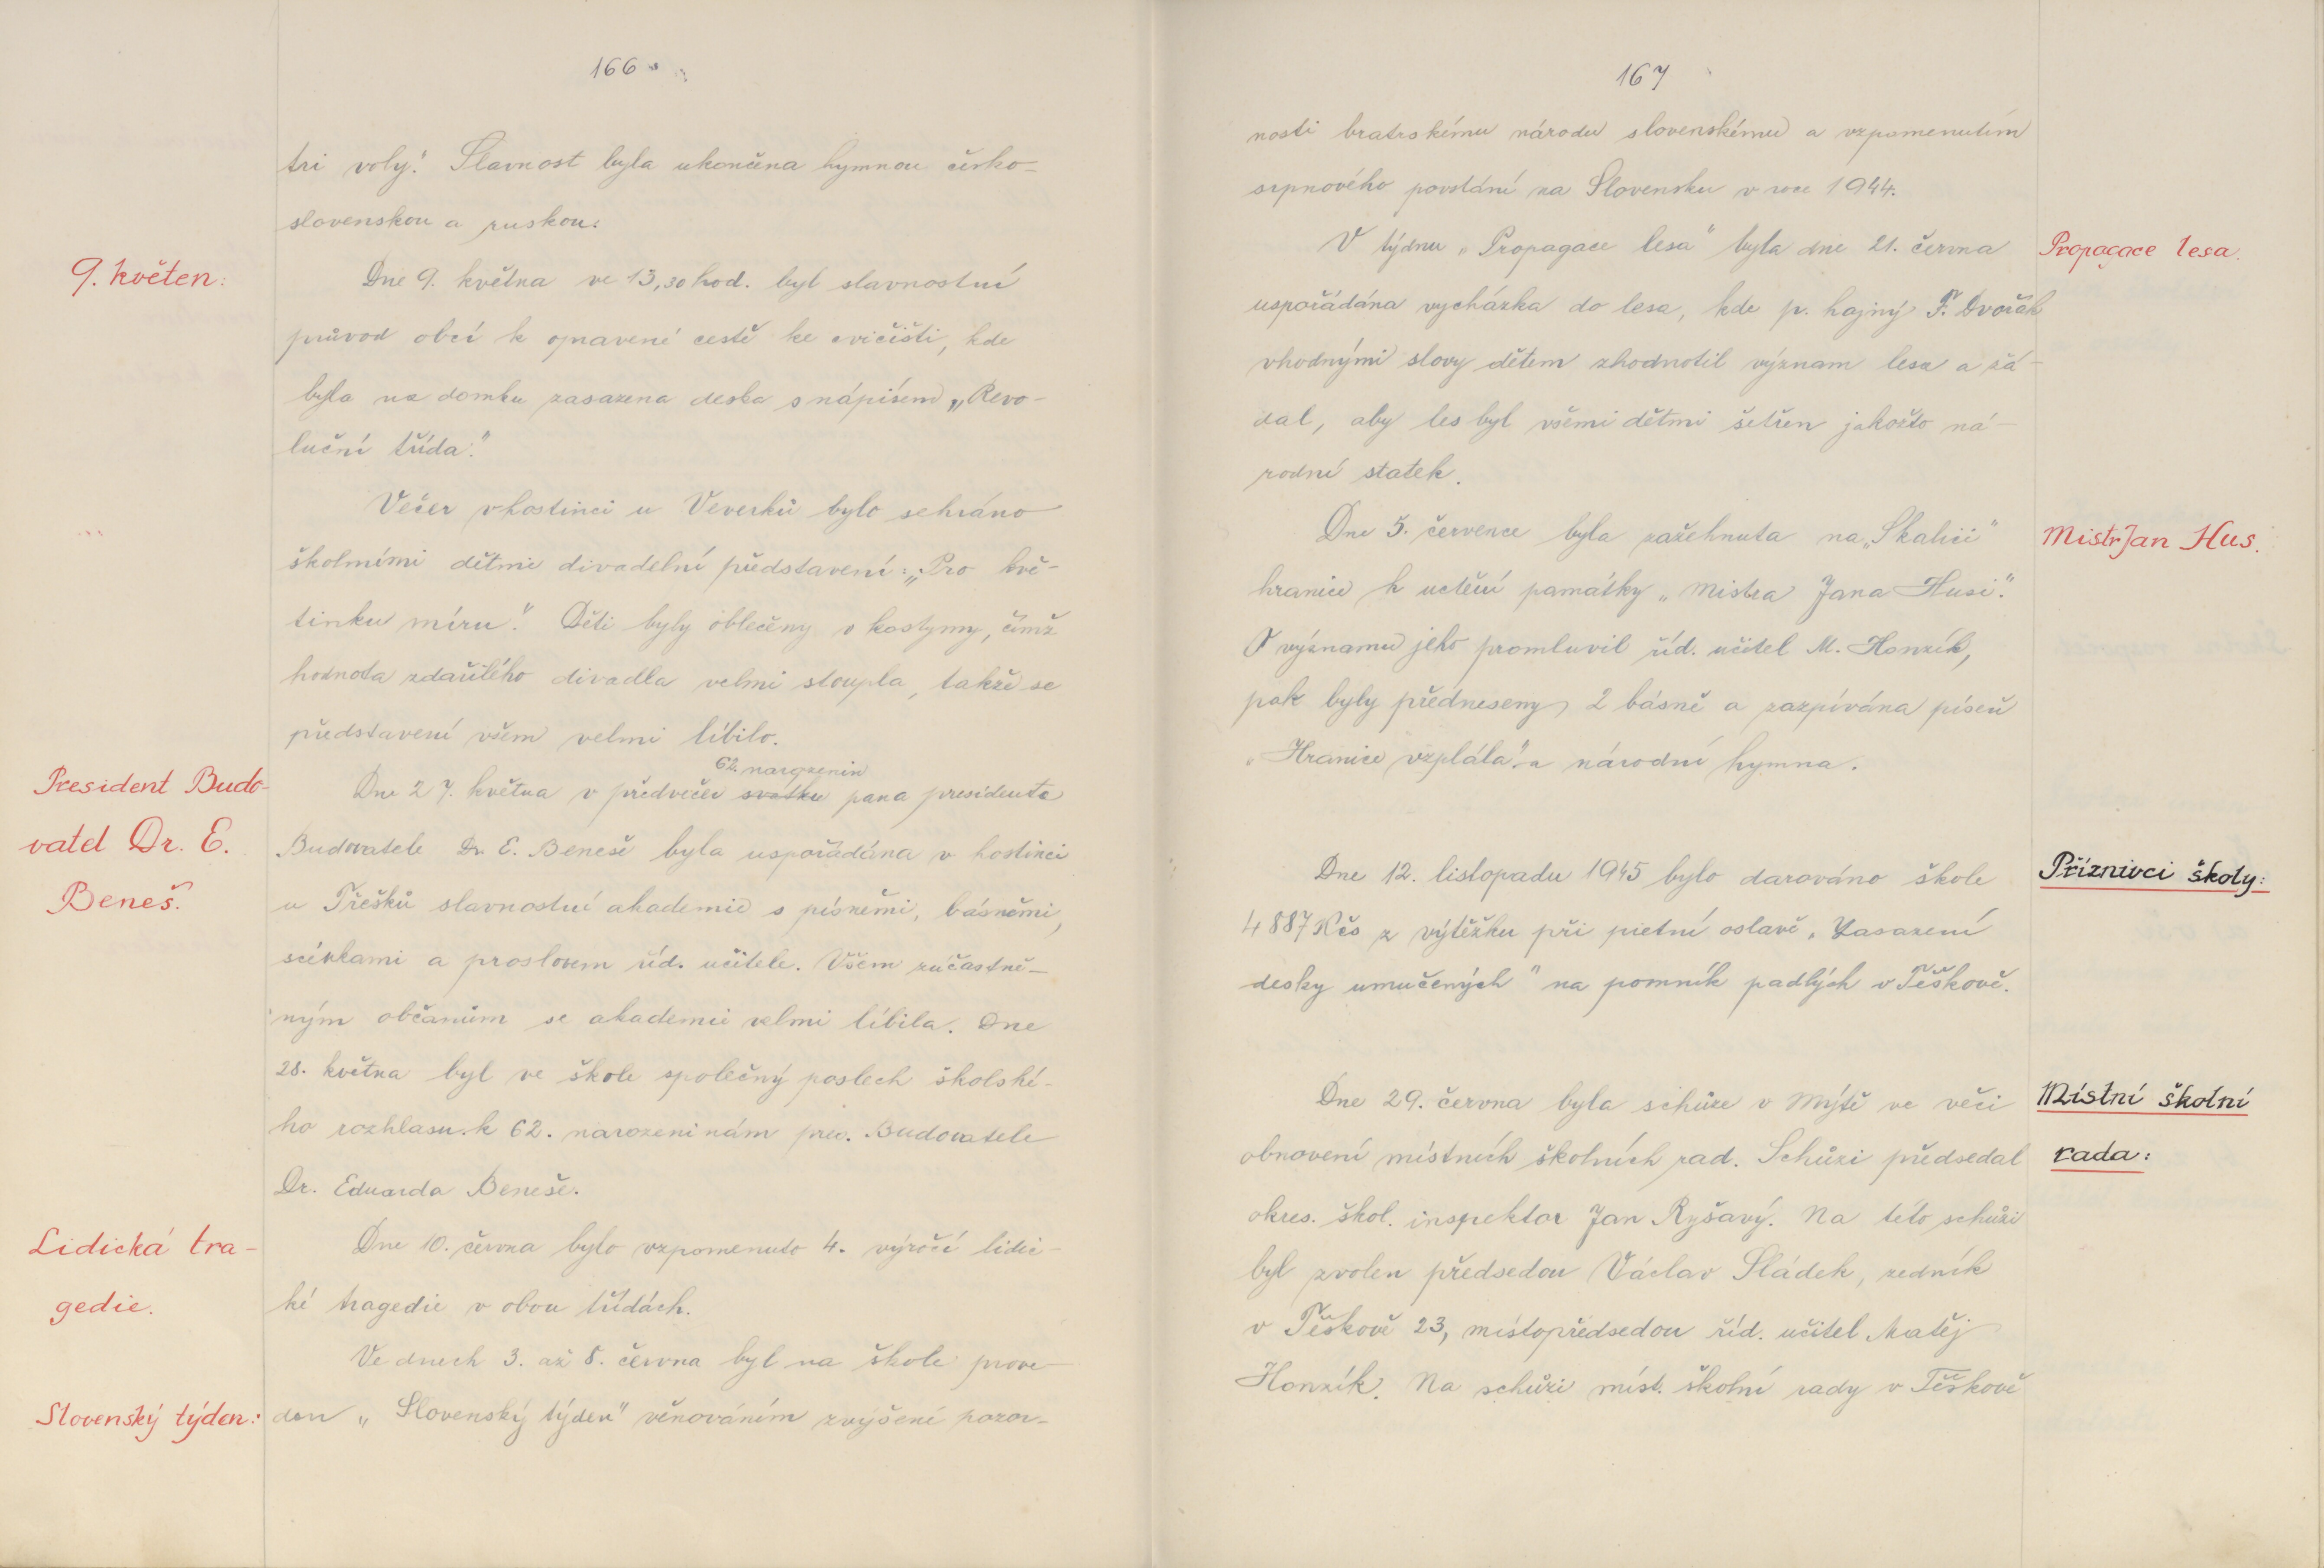 166
tri voly." Slavnost byla ukončena hymnou česko-
slovenskou a ruskou.
9. květen:
Dne 9. května ve 13,30 hod. byl slavnostní
průvod obcí k opravené cestě ke cvičišti, kde
byla na domku zasazena deska s nápisem „Revo-
luční třída."
Večer v hostinci u Veverků bylo sehráno
školními dětmi divadelní představení: „Pro kvě-
tinku míru". Děti byly oblečeny v kostymy, čímž
hodnota zdařilého divadla velmi stoupla, takže se
představení všem velmi líbilo.
President Budo-
vatel Dr. E.
Beneš.
62. narozenin
Dne 27. května v předvečer svátku pana presidenta
Budovatele Dr. E. Beneše byla uspořádána v hostinci
u Třešků slavnostní akademie s písněmi, básněmi,
scénkami a proslovem říd. učitele. Všem zúčastně-
ným občanům se akademie velmi líbila. Dne
28. května byl ve škole společný poslech školské-
ho rozhlasu k 62. narozeninám pres. Budovatele
Dr. Eduarda Beneše.
Lidická tra-
gedie.
Dne 10. června bylo vzpomenuto 4. výročí lidic-
ké tragedie v obou třídách.
Ve dnech 3. až 8. června byl na škole prove-
Slovenský týden:
den „Slovenský týden" věnováním zvýšené pozor-
167
nosti bratrskému národu slovenskému a vzpomenutím
srpnového povstání na Slovensku v roce 1944.
V týdnu „Propagace lesa" byla dne 21. června
Propagace lesa.
uspořádána vycházka do lesa, kde p. hajný F. Dvořák
vhodnými slovy dětem zhodnotil význam lesa a žá-
dal, aby les byl všemi dětmi šetřen jakožto ná-
rodní statek.
Dne 5. července byla zažehnuta na „Skalici"
Mistr Jan Hus.
hranice k uctění památky „Mistra Jana Husi".
O významu jeho promluvil říd. učitel M. Honzík,
pak byly předneseny 2 básně a zazpívána píseň
„Hranice vzplála" a národní hymna.
Dne 12. listopadu 1945 bylo darováno škole
Příznivci školy:
4887 Kčs z výtěžku při pietní oslavě „Zasazení
desky umučených" na pomník padlých v Těškově.
Dne 29. června byla schůze v Mýtě ve věci
Místní školní
rada:
obnovení místních školních rad. Schůzi předsedal
okres. škol. inspektor Jan Ryšavý. Na této schůzi
byl zvolen předsedou Václav Sládek, zedník
v Těškově 23, místopředsedou říd. učitel Matěj
Honzík. Na schůzi míst. školní rady v Těškově